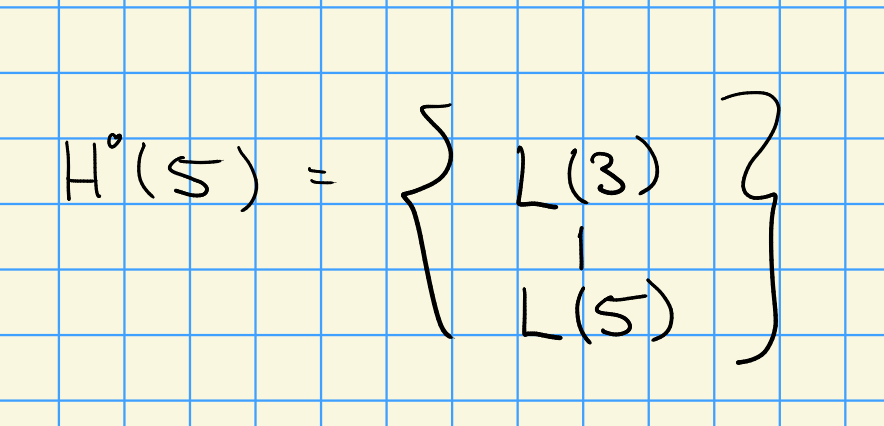 H⁰(5) = { L(3)
|
L(5) }